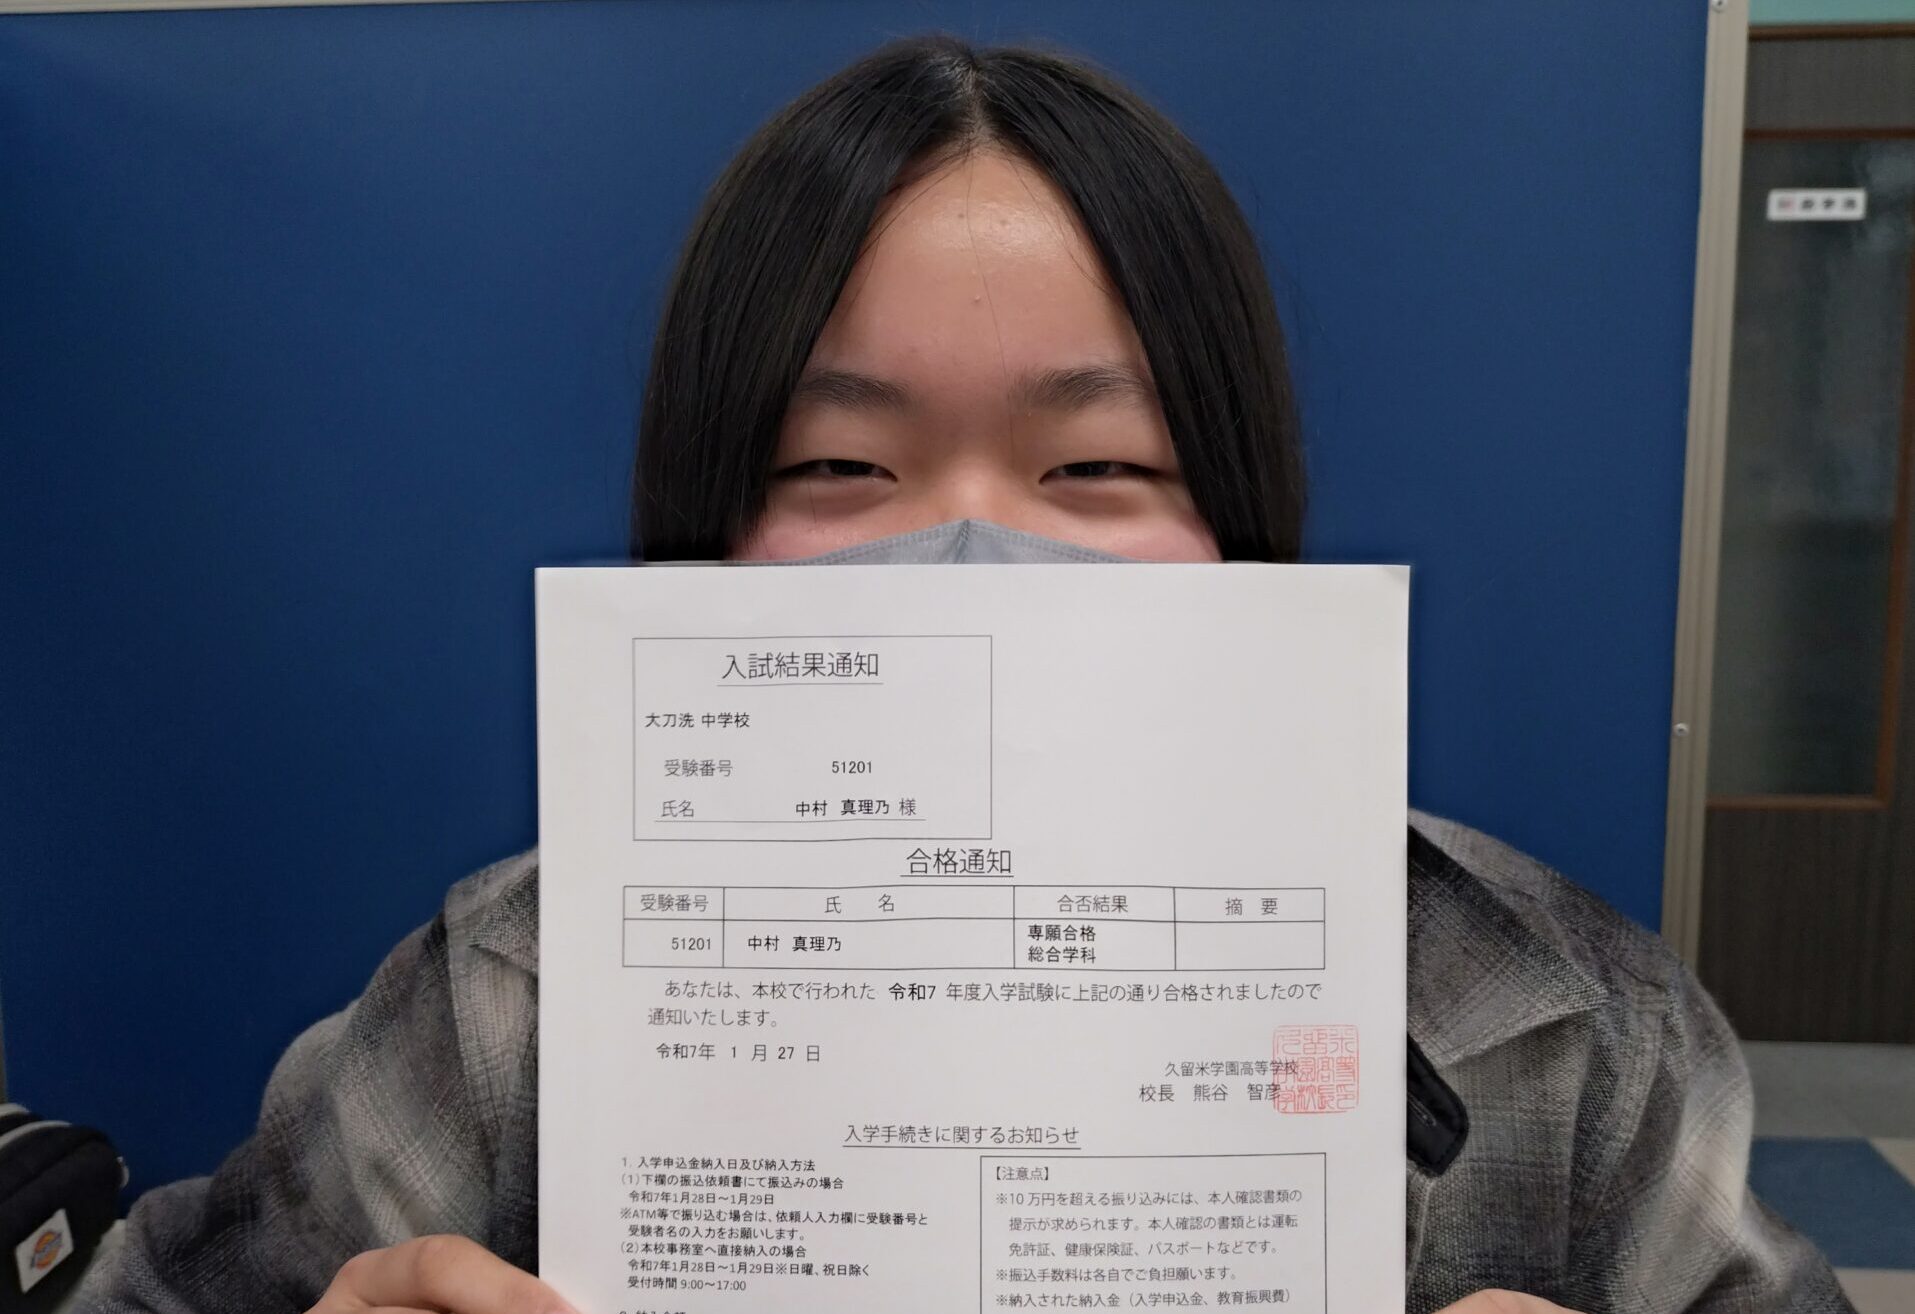 入試結果通知
大刀洗 中学校
受験番号 51201
氏名 中村 真理乃 様
合格通知
受験番号 氏 名 合否結果 摘 要
51201 中村 真理乃 専願合格
総合学科
あなたは、本校で行われた 令和7 年度入学試験に上記の通り合格されましたので
通知いたします。
令和7年 1 月 27 日
久留米学園高等学校
校長 熊谷 智彦
入学手続きに関するお知らせ
1. 入学申込金納入日及び納入方法
(1)下欄の振込依頼書にて振込みの場合
令和7年1月28日～1月29日
※ATM等で振り込む場合は、依頼人入力欄に受験番号と
受験者名の入力をお願いします。
(2)本校事務室へ直接納入の場合
令和7年1月28日～1月29日※日曜、祝日除く
受付時間 9:00～17:00
【注意点】
※10 万円を超える振り込みには、本人確認書類の
提示が求められます。本人確認の書類とは運転
免許証、健康保険証、パスポートなどです。
※振込手数料は各自でご負担願います。
※納入された納入金（入学申込金、教育振興費）